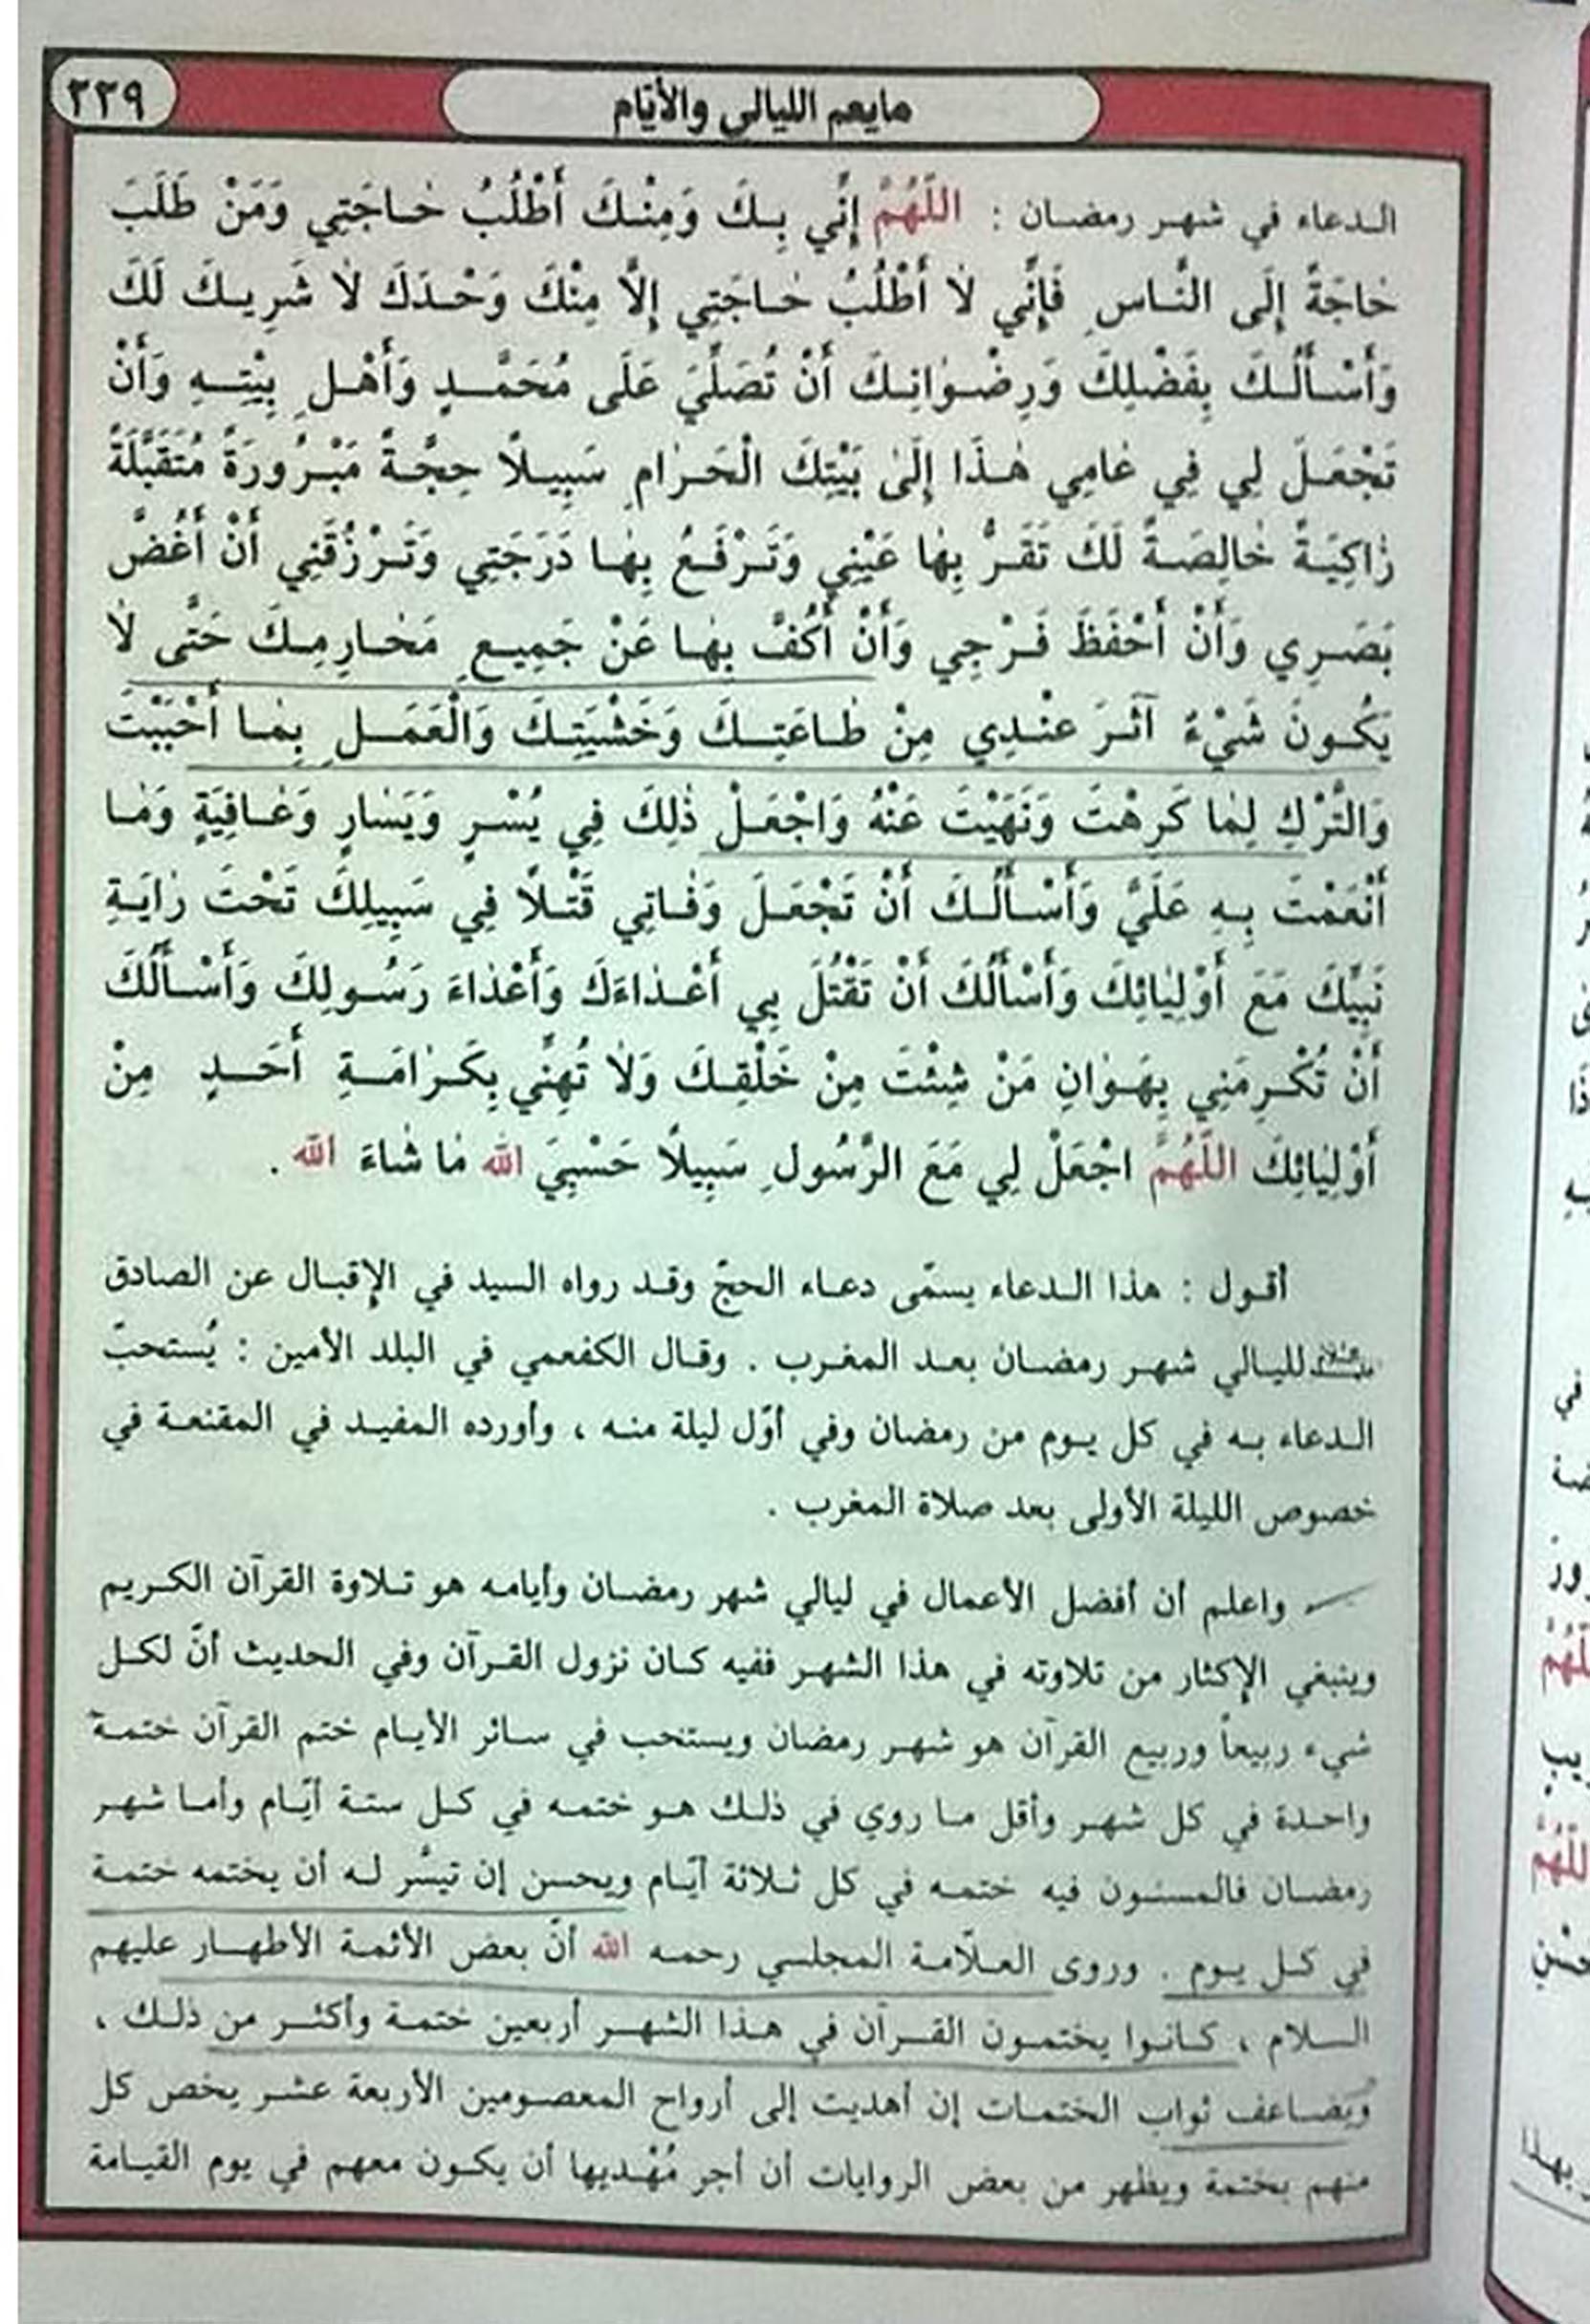 مايعم الليالي والأيّام
٢٣٩
الدعاء في شهر رمضان : اللّٰهُمَّ إِنِّي بِكَ وَمِنْكَ أَطْلُبُ حٰاجَتِي وَمَنْ طَلَبَ
حٰاجَةً إِلَى النّٰاسِ فَإِنِّي لٰا أَطْلُبُ حٰاجَتِي إِلَّا مِنْكَ وَحْدَكَ لٰا شَرِيكَ لَكَ
وَأَسْأَلُكَ بِفَضْلِكَ وَرِضْوٰانِكَ أَنْ تُصَلِّيَ عَلَى مُحَمَّدٍ وَأَهْلِ بِيْتِهِ وَأَنْ
تَجْعَلَ لِي فِي عٰامِي هٰذَا إِلَىٰ بَيْتِكَ الْحَرٰامِ سَبِيلًا حِجَّةً مَبْرُورَةً مُتَقَبَّلَةً
زٰاكِيَةً خٰالِصَةً لَكَ تَقَرُّ بِهٰا عَيْنِي وَتَرْفَعُ بِهٰا دَرَجَتِي وَتَرْزُقَنِي أَنْ أَغُضَّ
بَصَرِي وَأَنْ أَحْفَظَ فَرْجِي وَأَنْ أَكُفَّ بِهٰا عَنْ جَمِيعِ مَحٰارِمِكَ حَتَّى لٰا
يَكُونَ شَيْءٌ آثَرَ عِنْدِي مِنْ طٰاعَتِكَ وَخَشْيَتِكَ وَالْعَمَلِ بِمٰا أَحْبَبْتَ
وَالتَّرْكِ لِمٰا كَرِهْتَ وَنَهَيْتَ عَنْهُ وَاجْعَلْ ذٰلِكَ فِي يُسْرٍ وَيَسٰارٍ وَعٰافِيَةٍ وَمٰا
أَنْعَمْتَ بِهِ عَلَيَّ وَأَسْأَلُكَ أَنْ تَجْعَلَ وَفٰاتِي قَتْلًا فِي سَبِيلِكَ تَحْتَ رٰايَةِ
نَبِيِّكَ مَعَ أَوْلِيٰائِكَ وَأَسْأَلُكَ أَنْ تَقْتُلَ بِي أَعْدٰاءَكَ وَأَعْدٰاءَ رَسُولِكَ وَأَسْأَلُكَ
أَنْ تُكْرِمَنِي بِهَوٰانِ مَنْ شِئْتَ مِنْ خَلْقِكَ وَلٰا تُهِنِّي بِكَرٰامَةِ أَحَدٍ مِنْ
أَوْلِيٰائِكَ اللّٰهُمَّ اجْعَلْ لِي مَعَ الرَّسُولِ سَبِيلًا حَسْبِيَ اللّٰه مٰا شٰاءَ اللّٰه .
أقول : هذا الدعاء يسمّى دعاء الحجّ وقد رواه السيد في الإقبال عن الصادق
لليالي شهر رمضان بعد المغرب . وقال الكفعمي في البلد الأمين : يُستحبّ
الدعاء به في كل يوم من رمضان وفي أوّل ليلة منه ، وأورده المفيد في المقنعة في
خصوص الليلة الأولى بعد صلاة المغرب .
واعلم أن أفضل الأعمال في ليالي شهر رمضان وأيامه هو تلاوة القرآن الكريم
وينبغي الإكثار من تلاوته في هذا الشهر ففيه كان نزول القرآن وفي الحديث أنّ لكل
شيء ربيعاً وربيع القرآن هو شهر رمضان ويستحب في سائر الأيام ختم القرآن ختمة
واحدة في كل شهر وأقل ما روي في ذلك هو ختمه في كل ستة أيّام وأما شهر
رمضان فالمسنون فيه ختمه في كل ثلاثة أيّام ويحسن إن تيسَّر له أن يختمه ختمة
في كل يوم . وروى العلّامة المجلسي رحمه اللّٰه أنّ بعض الأئمة الأطهار عليهم
السلام ، كانوا يختمون القرآن في هذا الشهر أربعين ختمة وأكثر من ذلك ،
ويَضاعف ثواب الختمات إن أهديت إلى أرواح المعصومين الأربعة عشر يخص كل
منهم بختمة ويظهر من بعض الروايات أن أجر مُهْديها أن يكون معهم في يوم القيامة